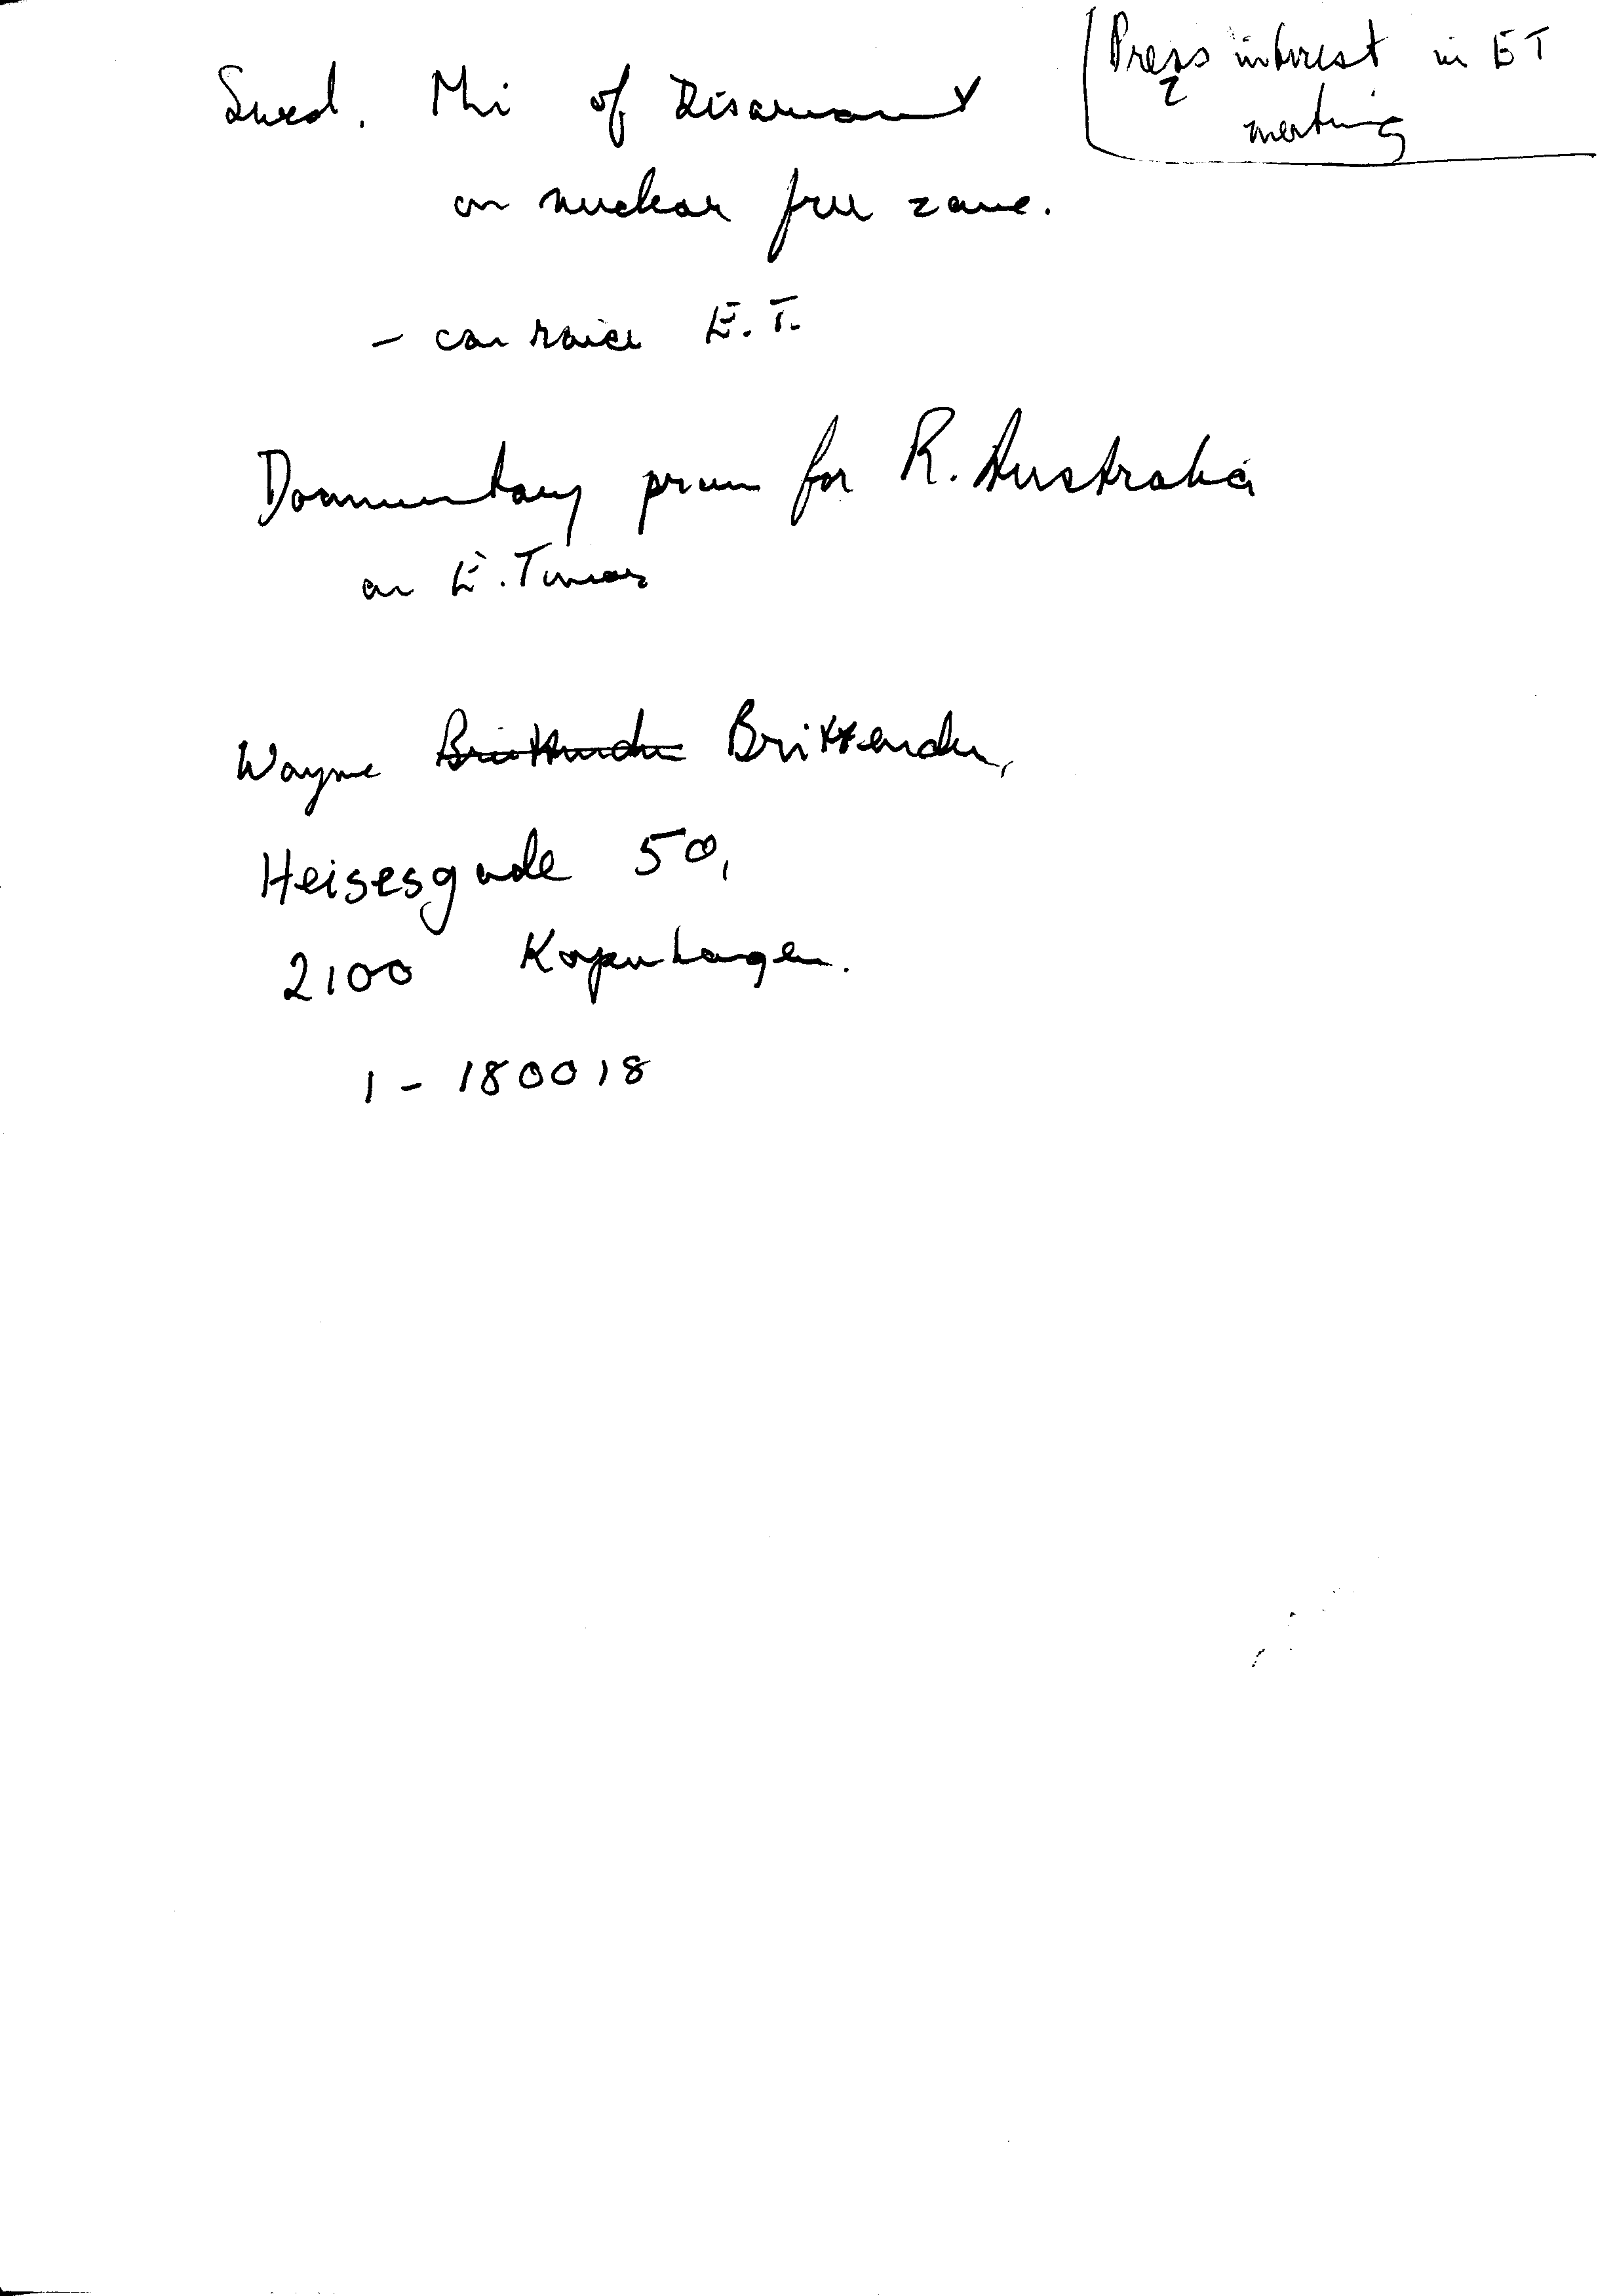 Press interest in ET
meeting
Swed. Mi of Disarmament
on nuclear free zone.
- can raise E.T.
Documentary for R. Australia
on E. Timor
Wayne Brittenden,
Heisesgade 50,
2100 Kopenhagen.
1-180018